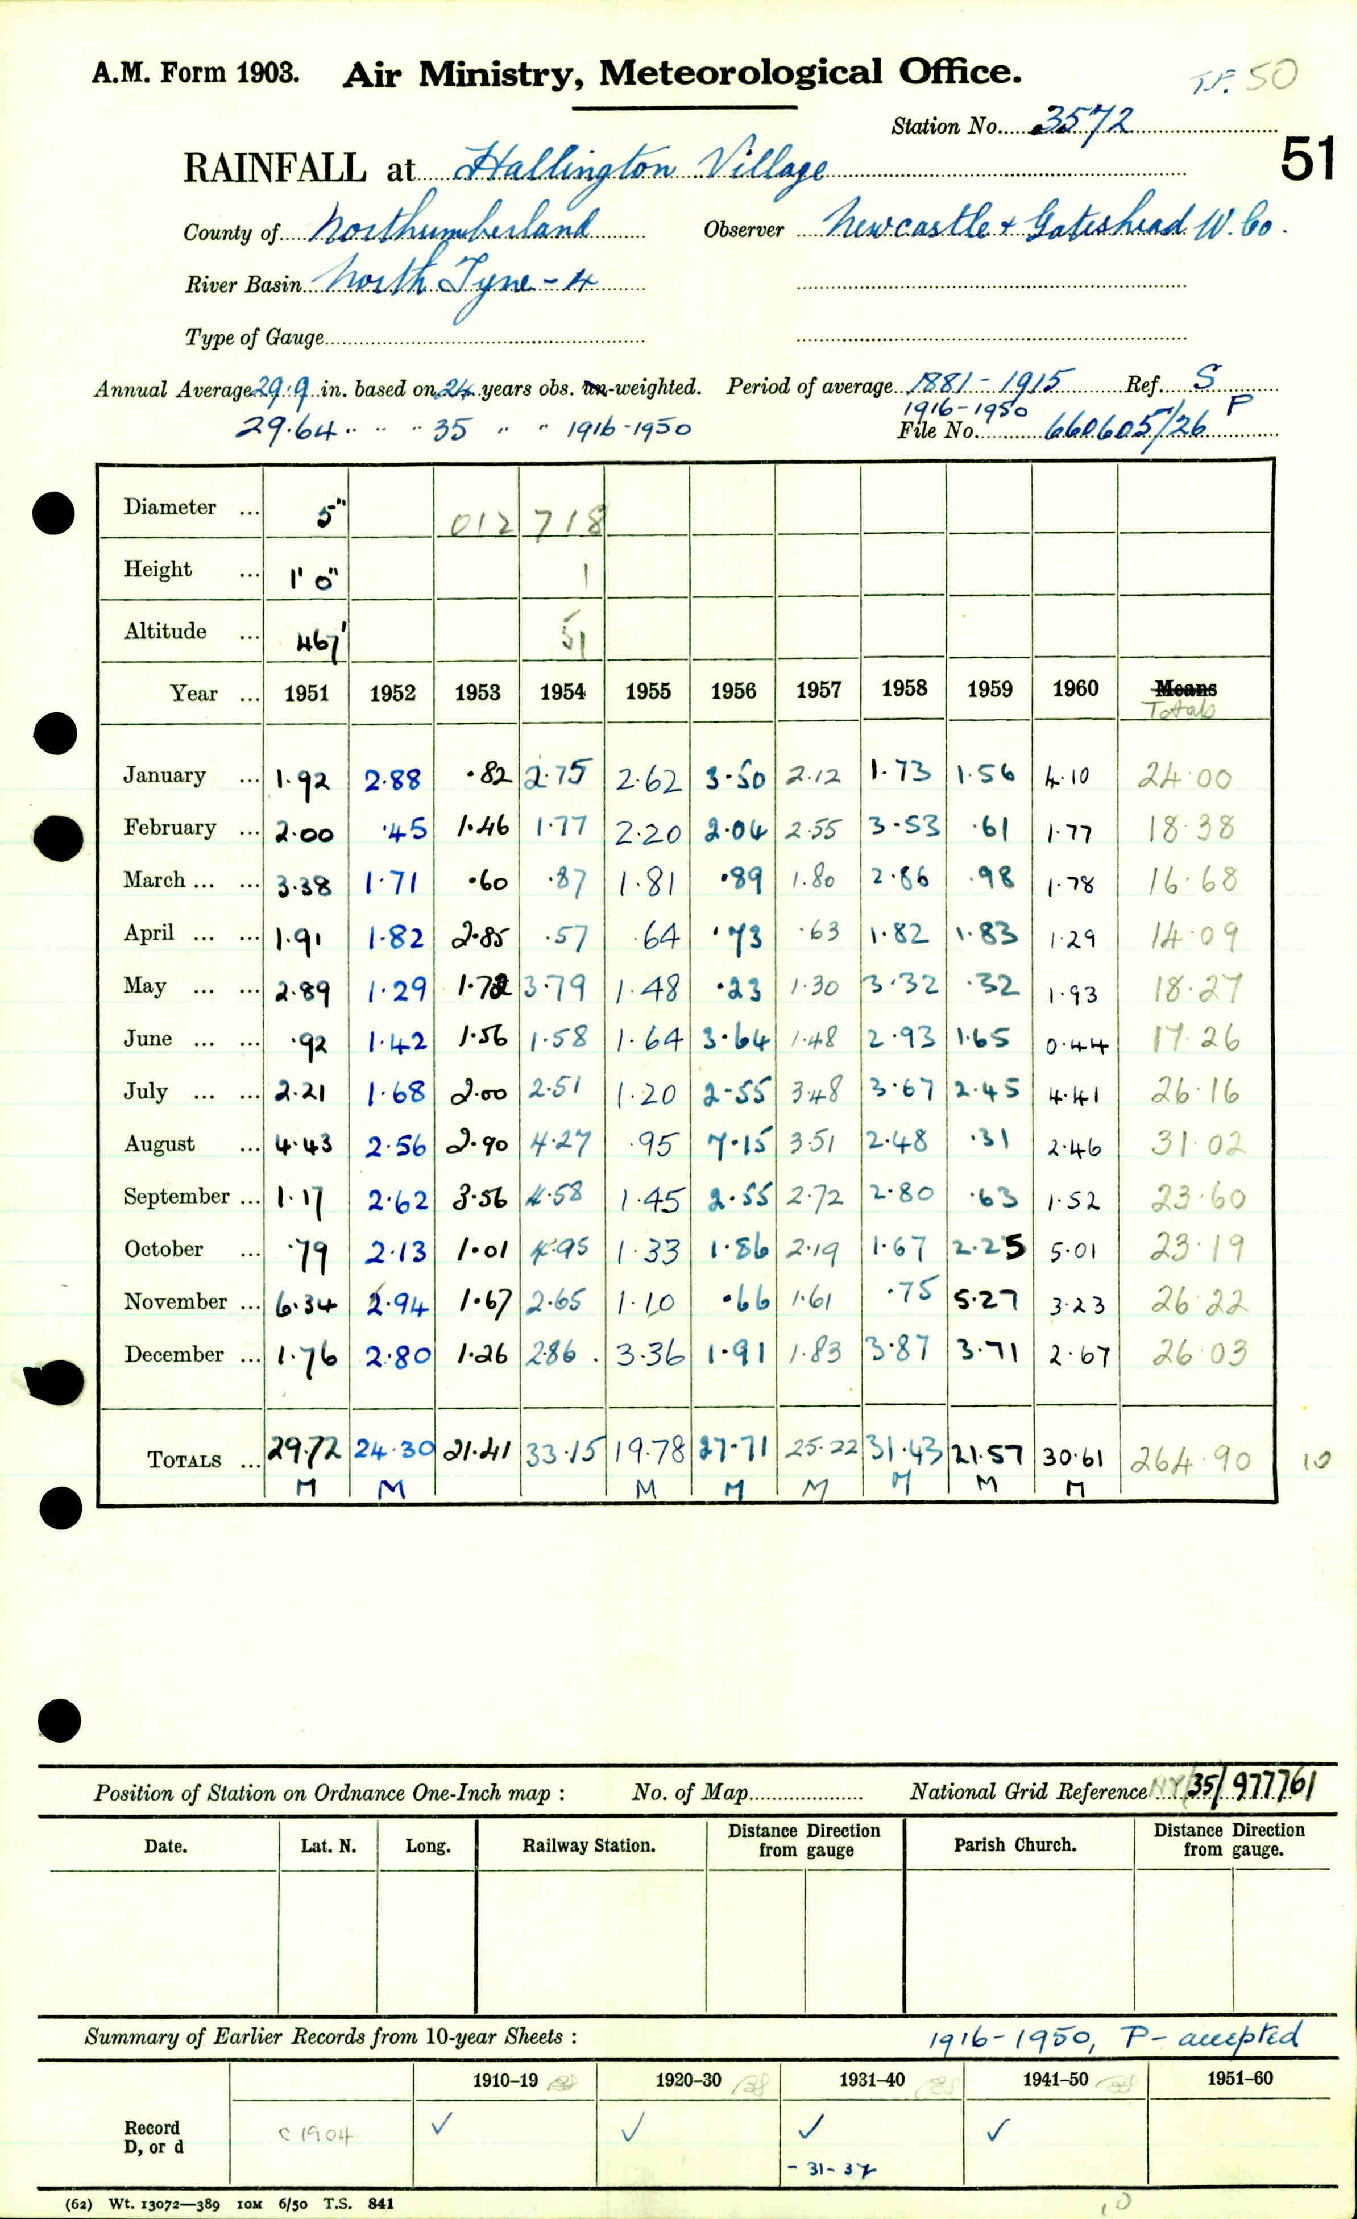 A.M. Form 1903. Air Ministry, Meteorological Office. 50
Station No. 3572
51
RAINFALL at Hallington Village
County of Northumberland Observer Newcastle & Gateshead W. Co.
River Basin North Tyne - 4
Type of Gauge
Annual Average 29.9 in. based on 24 years obs. un-weighted. Period of average 1881-1915 Ref. S
29.64 " " " 35 " " 1916-1950 1916-1950 P
File No. 660605/26
Diameter ... 5" 012 718
Height ... 1' 0" 1
Altitude ... 467' 51
Year ... 1951 1952 1953 1954 1955 1956 1957 1958 1959 1960 Means
Totals
January ... 1.92 2.88 .82 2.75 2.62 3.50 2.12 1.73 1.56 4.10 24.00
February ... 2.00 .45 1.46 1.77 2.20 2.04 2.55 3.53 .61 1.77 18.38
March ... ... 3.38 1.71 .60 .87 1.81 .89 1.80 2.86 .98 1.78 16.68
April ... ... 1.91 1.82 2.85 .57 .64 .73 .63 1.82 1.83 1.29 14.09
May ... ... 2.89 1.29 1.72 3.79 1.48 .23 1.30 3.32 .32 1.93 18.27
June ... ... .92 1.42 1.56 1.58 1.64 3.64 1.48 2.93 1.65 0.44 17.26
July ... ... 2.21 1.68 2.00 2.51 1.20 2.55 3.48 3.67 2.45 4.41 26.16
August ... 4.43 2.56 2.90 4.27 .95 7.15 3.51 2.48 .31 2.46 31.02
September ... 1.17 2.62 3.56 4.58 1.45 2.55 2.72 2.80 .63 1.52 23.60
October ... .79 2.13 1.01 4.95 1.33 1.86 2.19 1.67 2.25 5.01 23.19
November ... 6.34 2.94 1.67 2.65 1.10 .66 1.61 .75 5.27 3.23 26.22
December ... 1.76 2.80 1.26 2.86 3.36 1.91 1.83 3.87 3.71 2.67 26.03
TOTALS ... 29.72 24.30 21.41 33.15 19.78 27.71 25.22 31.43 21.57 30.61 264.90 10
M M M M M M M M
Position of Station on Ordnance One-Inch map : No. of Map National Grid Reference NY 35/977761
Date. Lat. N. Long. Railway Station. Distance from Direction gauge Parish Church. Distance from Direction gauge.
Summary of Earlier Records from 10-year Sheets : 1916-1950, P - accepted
1910-19 1920-30 1931-40 1941-50 1951-60
Record D, or d c 1904 ✓ ✓ ✓ ✓
- 31-37
(62) Wt. 13072—389 10M 6/50 T.S. 841
10